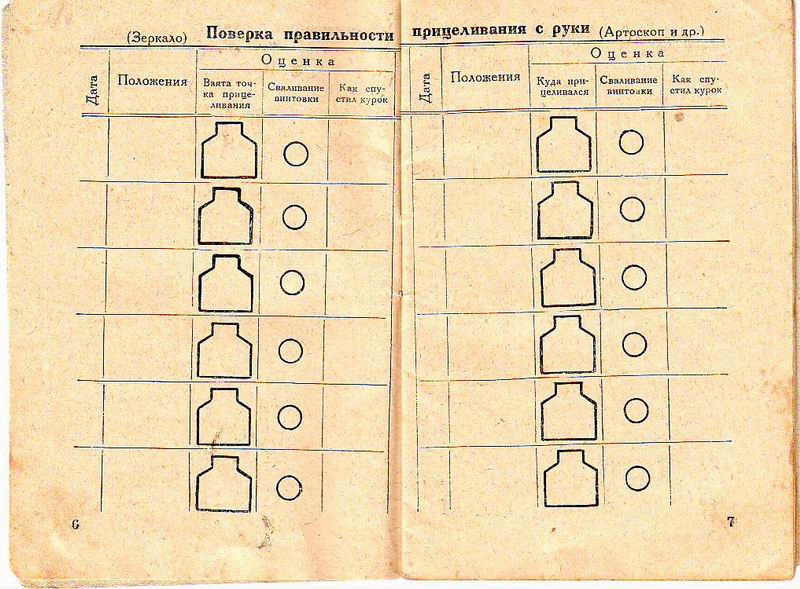 (Зеркало) Поверка правильности прицеливания с руки (Артоскоп и др.)
Дата
Положения
Оценка
Взята точ-
ка прице-
ливания
Сваливание
винтовки
Как спу-
стил курок
Дата
Положения
Оценка
Куда при-
целивался
Сваливание
винтовки
Как спу-
стил курок
6
7